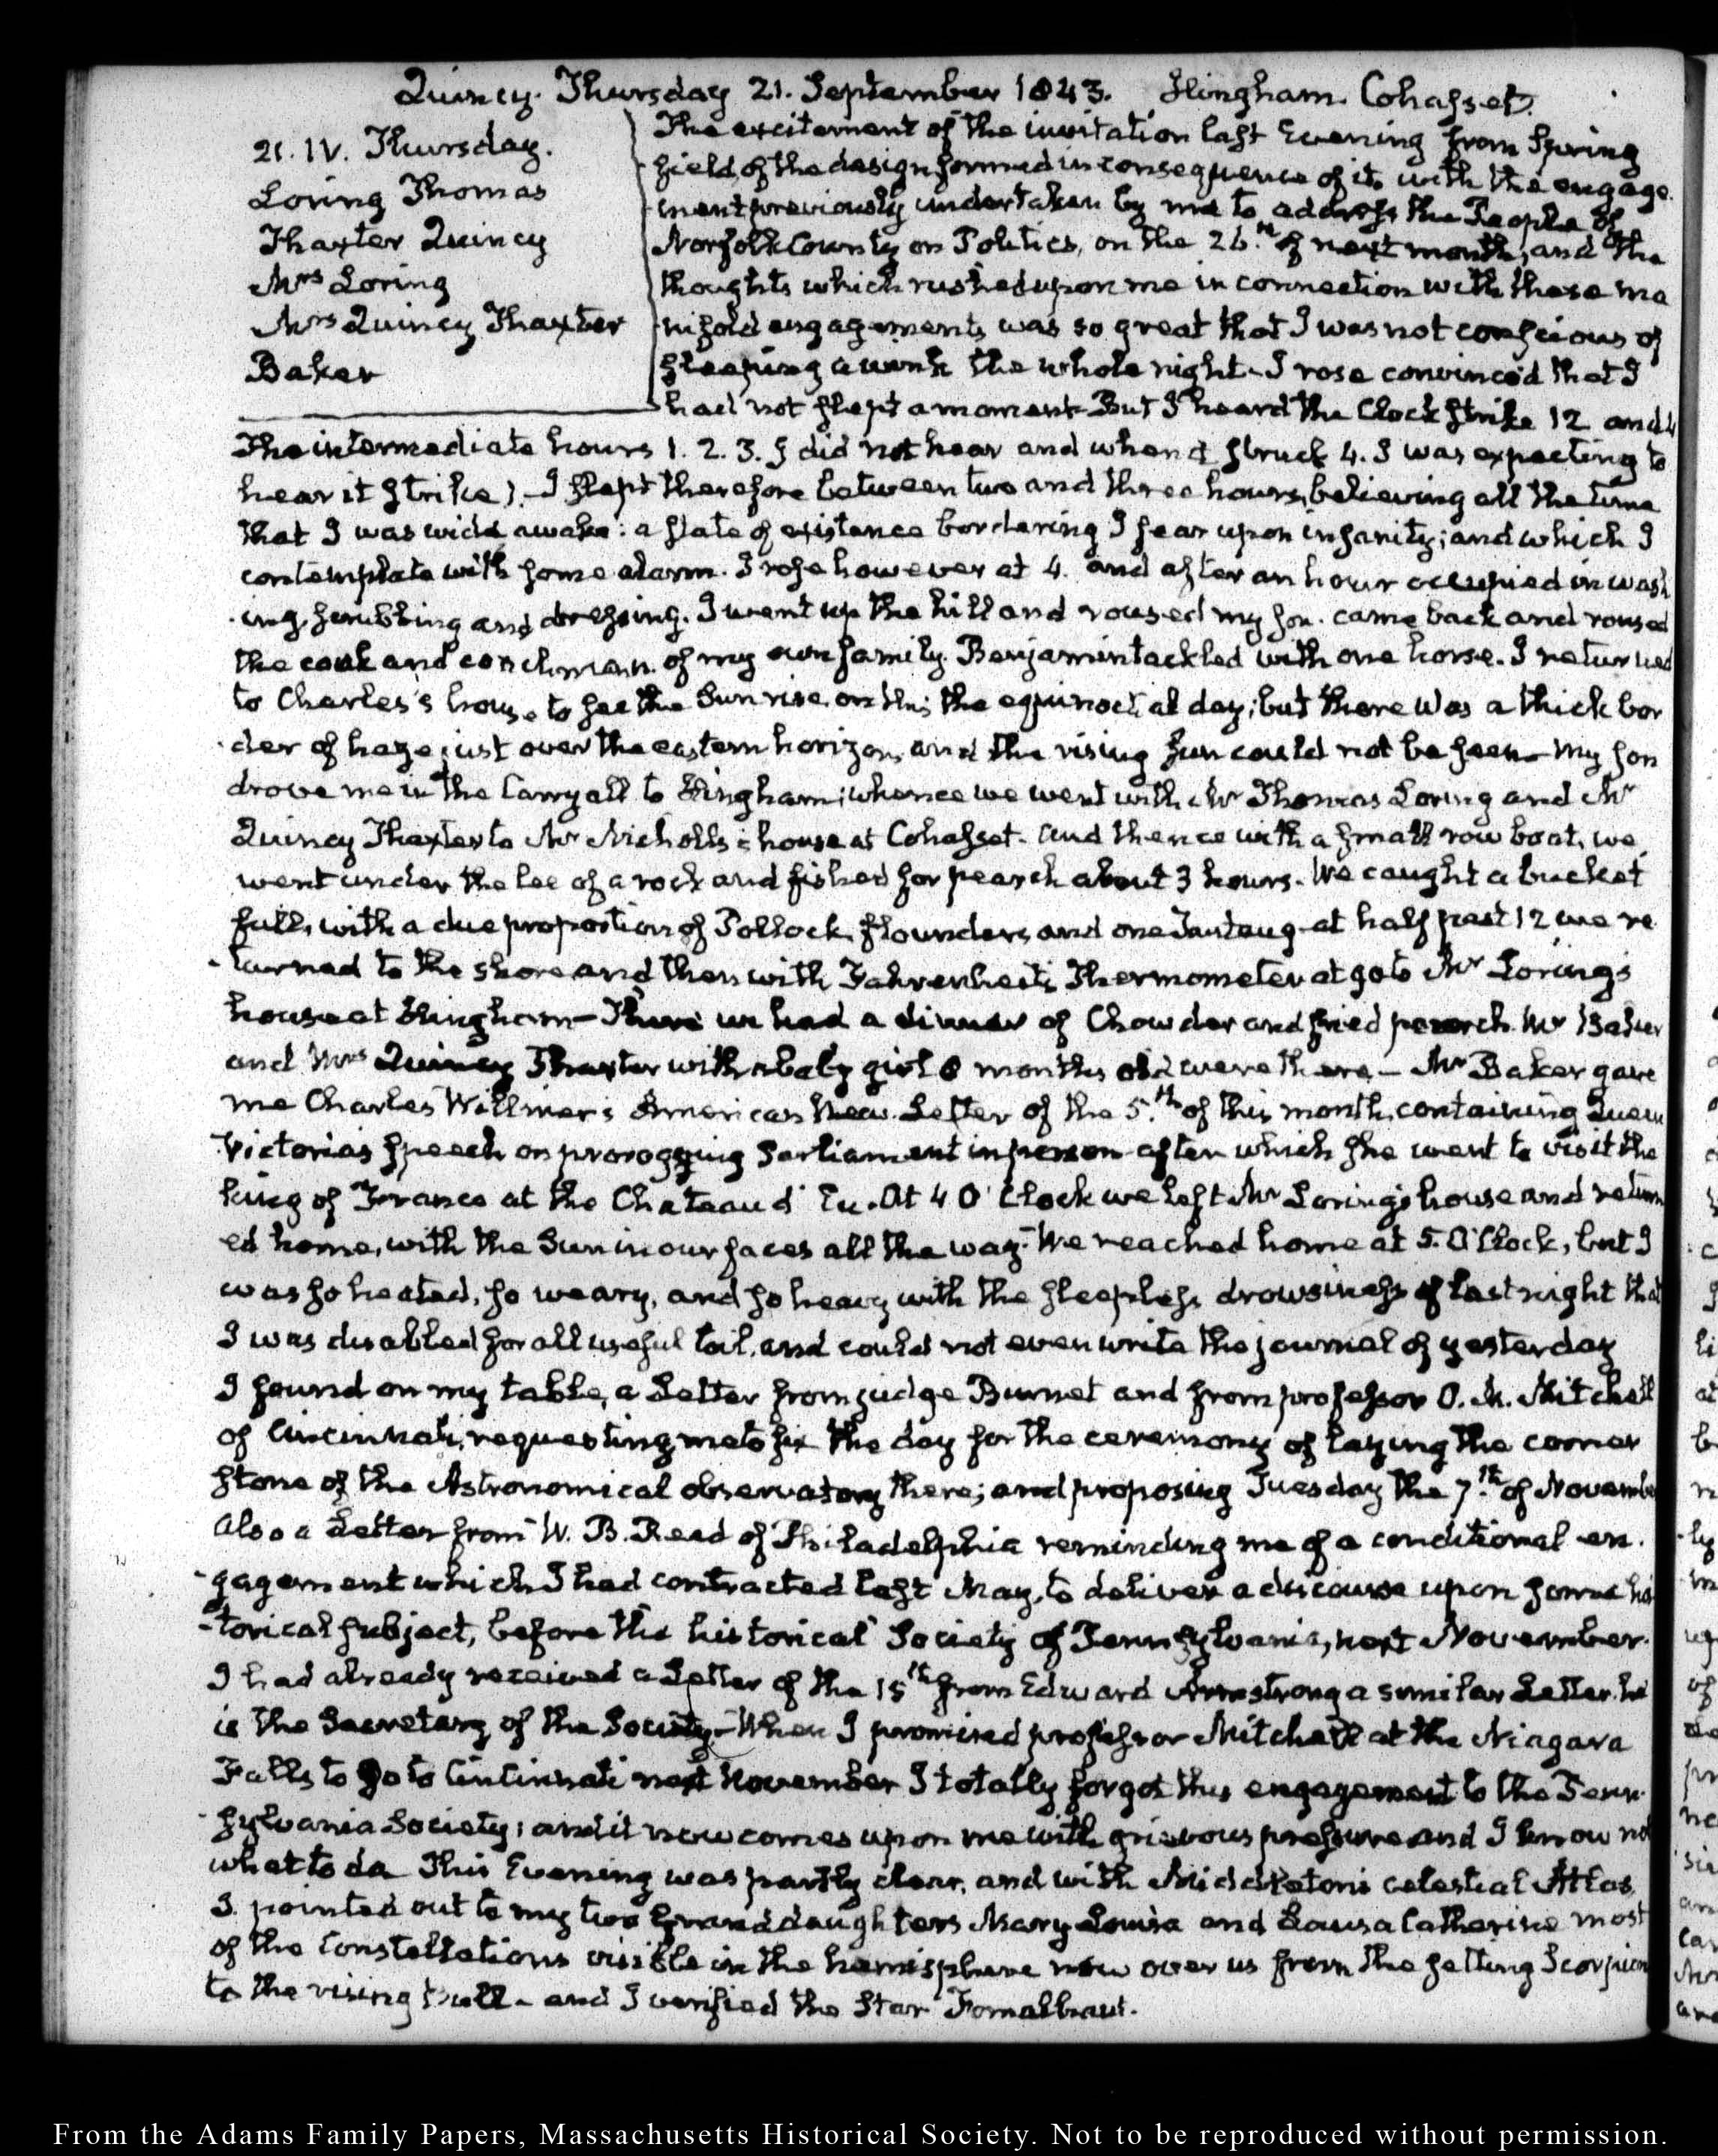 Quincy. Thursday 21. September 1843. Hingham. Cohasset.
21. IV. Thursday.
Loring Thomas
Thaxter Quincy
Mrs Loring
Mrs Quincy Thaxter
Baker
The excitement of the invitation last Evening from Spring
field, of the design formed in consequence of it, with the engage
ment previously undertaken by me to address the People of
Norfolk County on Politics, on the 26.th of next month, and the
thoughts which rushed upon me in connection with these ma
nifold engagements was so great that I was not conscious of
sleeping a wink the whole night – I rose convinced that I
had not slept a moment – But I heard the Clock strike 12 and 4
The intermediate hours 1. 2. 3. I did not hear and when it struck 4. I was expecting to
hear it strike 1. – I slept therefore between two and three hours, believing all the time
that I was wide awake: a state of existence bordering I fear upon insanity; and which I
contemplate with some alarm. I rose however at 4. and after an hour occupied in wash
ing, scrubbing and dressing. I went up the hill and roused my son. came back and roused
the cook and coachman of my own family. Benjamin tackled with one horse. I returned
to Charles's house to see the Sun rise, on this the equinoctial day; but there was a thick bor
der of haze just over the eastern horizon, and the rising Sun could not be seen – My son
drove me in the Carryall to Hingham; whence we went with Mr Thomas Loring and Mr
Quincy Thaxter to Mr Nicholls's house at Cohasset. and thence with a small row boat, we
went under the lee of a rock and fished for pearch about 3 hours. We caught a bucket
full, with a due proportion of Pollock, flounders, and one Tautaug – at half past 12 we re
turned to the shore and then with Fahrenheit's Thermometer at 90 to Mr Loring's
house at Hingham – There we had a dinner of Chowder and fried pearch. Mr Baker
and Mrs Quincy Thaxter with a baby girl 8 months old were there – Mr Baker gave
me Charles Willmer's American News Letter of the 5.th of this month, containing Queen
Victoria's speech on proroguing Parliament in person after which she went to visit the
king of France at the Chateau d' Eu. At 4 O'Clock we left Mr Loring's house and return
ed home, with the Sun in our faces all the way – We reached home at 5. O'Clock, but I
was so heated, so weary, and so heavy with the sleepless drowsiness of last night that
I was disabled for all useful toil, and could not even write the journal of yesterday
I found on my table, a Letter from judge Burnet and from professor O. M. Mitchell
of Cincinnati, requesting me to fix the day for the ceremony of laying the corner
stone of the Astronomical observatory there; and proposing Tuesday the 7.th of November
also a Letter from W. B. Read of Philadelphia reminding me of a conditional en
gagement which I had contracted last May, to deliver a discourse upon some his
torical subject, before the historical Society of Pennsylvania, next November.
I had already received a Letter of the 15th from Edward Armstrong a similar Letter. he
is the Secretary of the Society – When I promised professor Mitchell at the Niagara
Falls to go to Cincinnati next November I totally forgot this engagement to the Penn
sylvania Society; and it now comes upon me with grievous pressure and I know not
what to do. This Evening was partly clear, and with Middleton's celestial Atlas
I pointed out to my two Granddaughters Mary Louisa and Louisa Catherine most
of the Constellations visible in the hemisphere now over us from the setting Scorpion
to the rising bull – and I verified the Star Fomalhaut.
From the Adams Family Papers, Massachusetts Historical Society. Not to be reproduced without permission.